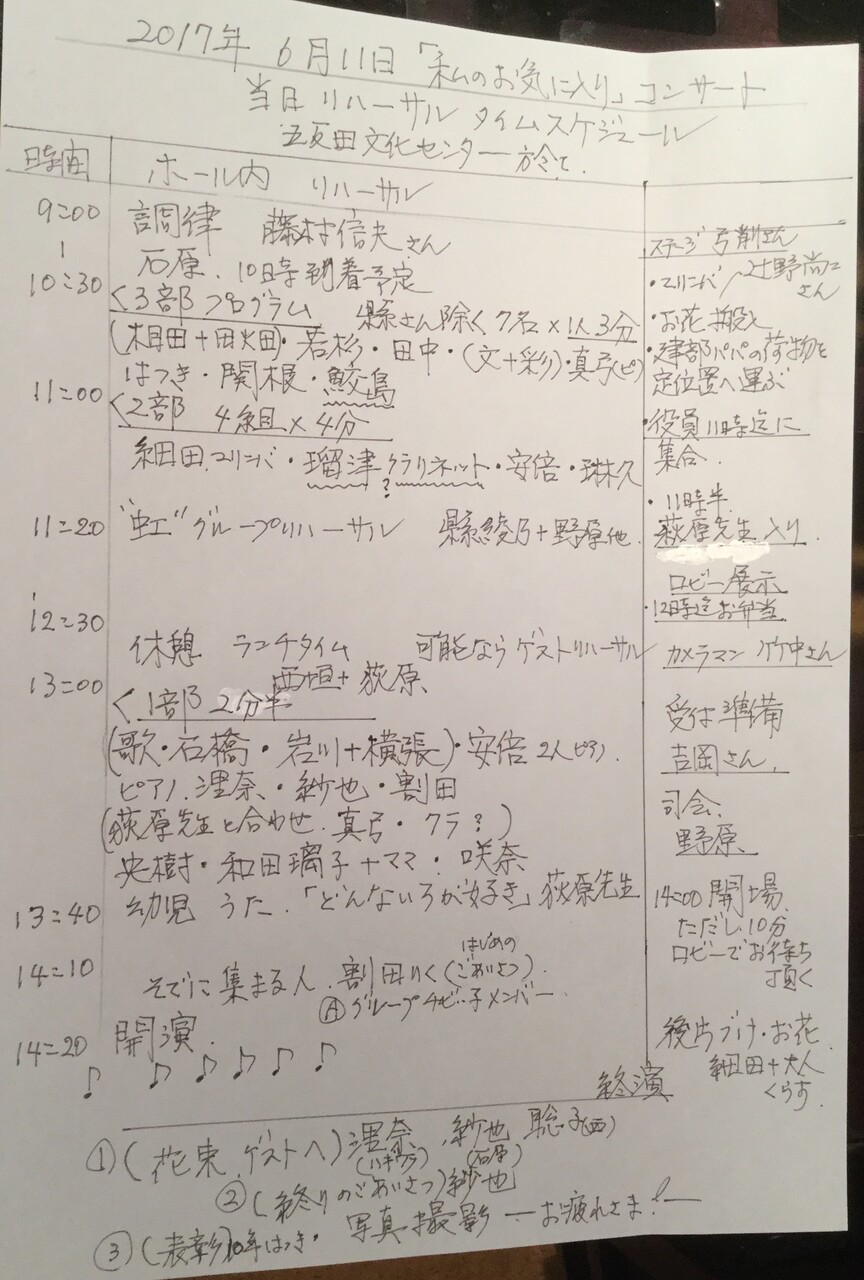 2017年 6月11日「私のお気に入り」コンサート
当日 リハーサル タイムスケジュール
五反田文化センター 於て.
時間
ホール内 リハーサル
9:00
調律 藤村信夫さん
10:30
石原. 10時到着予定
<3部 プログラム 縣さん除く 7名×1人3分
・若杉・田中・(文+彩)・真弓(ピ)
11:00
はつき・関根・鮫島
<2部 4組×4分
細田マリンバ・瑠津クラリネット・安倍・琳久
?
11:20 "虹"グループリハーサル 縣綾乃+野原他.
12:30
休憩 ランチタイム 可能ならゲストリハーサル
13:00
西垣+荻原
<1部 2分半
(歌・石橋・岩川+横張)・安倍2人ピアノ.
ピアノ.浬奈・紗也・割田
(荻原先生と合わせ.真弓・クラ?)
央樹・和田璃子+ママ・咲奈
13:40 幼児 うた.「どんないろが好き」荻原先生
14:10 そでに集まる人.割田りく(はじめのごあいさつ).
Ⓐグループチビっ子メンバー
14:20 開演.
♪ ♪ ♪ ♪ ♪ ♪
終演
ステージ 弓削さん
・マリンバ/辻野尚子さん
・お花搬入
・建部パパの荷物を
定位置へ運ぶ
・役員11時迄に
集合.
・11時半.
荻原先生入り.
ロビー展示
・12時迄お弁当
カメラマン 竹中さん
受付準備
吉岡さん.
司会.
野原.
14:00開場.
ただし10分
ロビーでお待ち
頂く
後片づけ・お花.
細田+大人
くらす.
①(花束 ゲストへ)浬奈.紗也 聡子(西)
(ハギワラ) (石原)
②(終りのごあいさつ)紗也
③(表彰)10年はつき・ 写真撮影 ーお疲れさま!ー